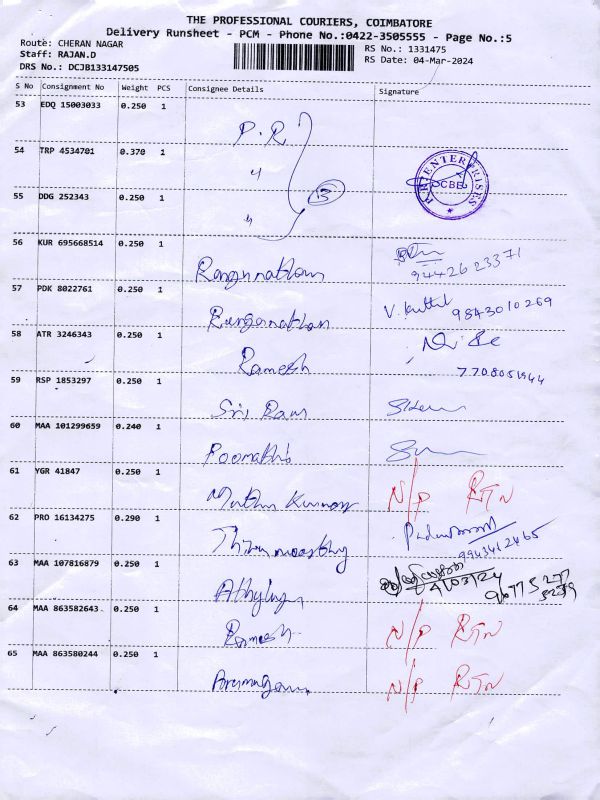 THE PROFESSIONAL COURIERS, COIMBATORE
Delivery Runsheet - PCM - Phone No.:0422-3505555 - Page No.:5
Route: CHERAN NAGAR RS No.: 1331475
Staff: RAJAN.D RS Date: 04-Mar-2024
DRS No.: DCJB133147505
S No Consignment No Weight PCS Consignee Details Signature
53 EDQ 15003033 0.250 1
P.R
54 TRP 4534701 0.370 1
K.R ENTERPRISES CBE
55 DDG 252343 0.250 1
13
56 KUR 695668514 0.250 1
Ranganathan 9442623371
57 PDK 8022761 0.250 1
Ranganathan V. 9843010269
58 ATR 3246343 0.250 1
Ramesh 7708051944
59 RSP 1853297 0.250 1
Sri Ram
60 MAA 101299659 0.240 1
Poomathi
61 YGR 41847 0.250 1
Muthu Kumar N/P RTN
62 PRO 16134275 0.290 1
Thirumoorthy 9943412465
63 MAA 107816879 0.250 1
4/03/24 96775 277
64 MAA 863582643 0.250 1
Ramesh N/P RTN
65 MAA 863580244 0.250 1
Arumugam N/P RTN